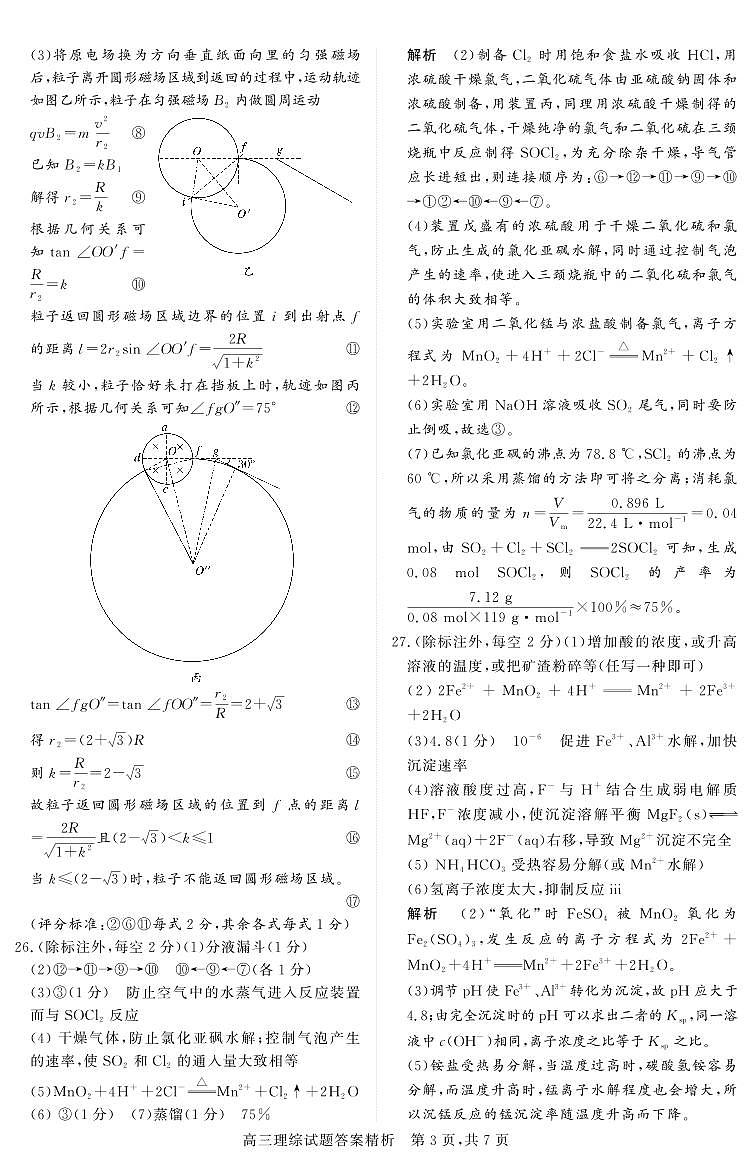 (3)将原电场换为方向垂直纸面向里的匀强磁场
后,粒子离开圆形磁场区域到返回的过程中,运动轨迹
如图乙所示,粒子在匀强磁场 B₂ 内做圆周运动
qvB₂=m v²/r₂ ⑧
已知 B₂=kB₁
解得 r₂=R/k ⑨
根据几何关系可
知 tan ∠OO′f=
R/r₂=k ⑩
O f g
i O′
乙
粒子返回圆形磁场区域边界的位置 i 到出射点 f
的距离 l=2r₂sin ∠OO′f=2R/√(1+k²) ⑪
当 k 较小,粒子恰好未打在挡板上时,轨迹如图丙
所示,根据几何关系可知∠fgO″=75° ⑫
a
d O f g 30°
c
O″
丙
tan ∠fgO″=tan ∠fOO″=r₂/R=2+√3 ⑬
得 r₂=(2+√3)R ⑭
则 k=R/r₂=2−√3 ⑮
故粒子返回圆形磁场区域的位置到 f 点的距离 l
=2R/√(1+k²)且(2−√3)<k≤1 ⑯
当 k≤(2−√3)时,粒子不能返回圆形磁场区域。
⑰
(评分标准:②⑥⑪每式 2 分,其余各式每式 1 分)
26.(除标注外,每空 2 分)(1)分液漏斗(1 分)
(2)⑫→⑪→⑨→⑩ ⑩←⑨←⑦(各 1 分)
(3)③(1 分) 防止空气中的水蒸气进入反应装置
而与 SOCl₂ 反应
(4) 干燥气体,防止氯化亚砜水解;控制气泡产生
的速率,使 SO₂ 和 Cl₂ 的通入量大致相等
(5)MnO₂+4H⁺+2Cl⁻ ≜ Mn²⁺+Cl₂↑+2H₂O
(6) ③(1 分) (7)蒸馏(1 分) 75%
解析 (2)制备 Cl₂ 时用饱和食盐水吸收 HCl,用
浓硫酸干燥氯气,二氧化硫气体由亚硫酸钠固体和
浓硫酸制备,用装置丙,同理用浓硫酸干燥制得的
二氧化硫气体,干燥纯净的氯气和二氧化硫在三颈
烧瓶中反应制得 SOCl₂,为充分除杂干燥,导气管
应长进短出,则连接顺序为:⑥→⑫→⑪→⑨→⑩
→①②←⑩←⑨←⑦。
(4)装置戊盛有的浓硫酸用于干燥二氧化硫和氯
气,防止生成的氯化亚砜水解,同时通过控制气泡
产生的速率,使进入三颈烧瓶中的二氧化硫和氯气
的体积大致相等。
(5)实验室用二氧化锰与浓盐酸制备氯气,离子方
程式为 MnO₂+4H⁺+2Cl⁻ ≜ Mn²⁺+Cl₂↑
+2H₂O。
(6)实验室用 NaOH 溶液吸收 SO₂ 尾气,同时要防
止倒吸,故选③。
(7)已知氯化亚砜的沸点为 78.8 ℃,SCl₂ 的沸点为
60 ℃,所以采用蒸馏的方法即可将之分离;消耗氯
气的物质的量为 n=V/Vₘ=0.896 L/22.4 L·mol⁻¹=0.04
mol,由 SO₂+Cl₂+SCl₂══2SOCl₂ 可知,生成
0.08 mol SOCl₂, 则 SOCl₂ 的产率为
7.12 g/0.08 mol×119 g·mol⁻¹×100%≈75%。
27.(除标注外,每空 2 分)(1)增加酸的浓度,或升高
溶液的温度,或把矿渣粉碎等(任写一种即可)
(2) 2Fe²⁺+MnO₂+4H⁺══Mn²⁺+2Fe³⁺
+2H₂O
(3)4.8(1 分) 10⁻⁶ 促进 Fe³⁺、Al³⁺水解,加快
沉淀速率
(4)溶液酸度过高,F⁻与 H⁺结合生成弱电解质
HF,F⁻浓度减小,使沉淀溶解平衡 MgF₂(s)⇌
Mg²⁺(aq)+2F⁻(aq)右移,导致 Mg²⁺沉淀不完全
(5) NH₄HCO₃ 受热容易分解(或 Mn²⁺水解)
(6)氢离子浓度太大,抑制反应 iii
解析 (2)“氧化”时 FeSO₄ 被 MnO₂ 氧化为
Fe₂(SO₄)₃,发生反应的离子方程式为 2Fe²⁺+
MnO₂+4H⁺══Mn²⁺+2Fe³⁺+2H₂O。
(3)调节 pH 使 Fe³⁺、Al³⁺转化为沉淀,故 pH 应大于
4.8;由完全沉淀时的 pH 可以求出二者的 Kₛₚ,同一溶
液中 c(OH⁻)相同,离子浓度之比等于 Kₛₚ 之比。
(5)铵盐受热易分解,当温度过高时,碳酸氢铵容易
分解,而温度升高时,锰离子水解程度也会增大,所
以沉锰反应的锰沉淀率随温度升高而下降。
高三理综试题答案精析 第 3 页,共 7 页